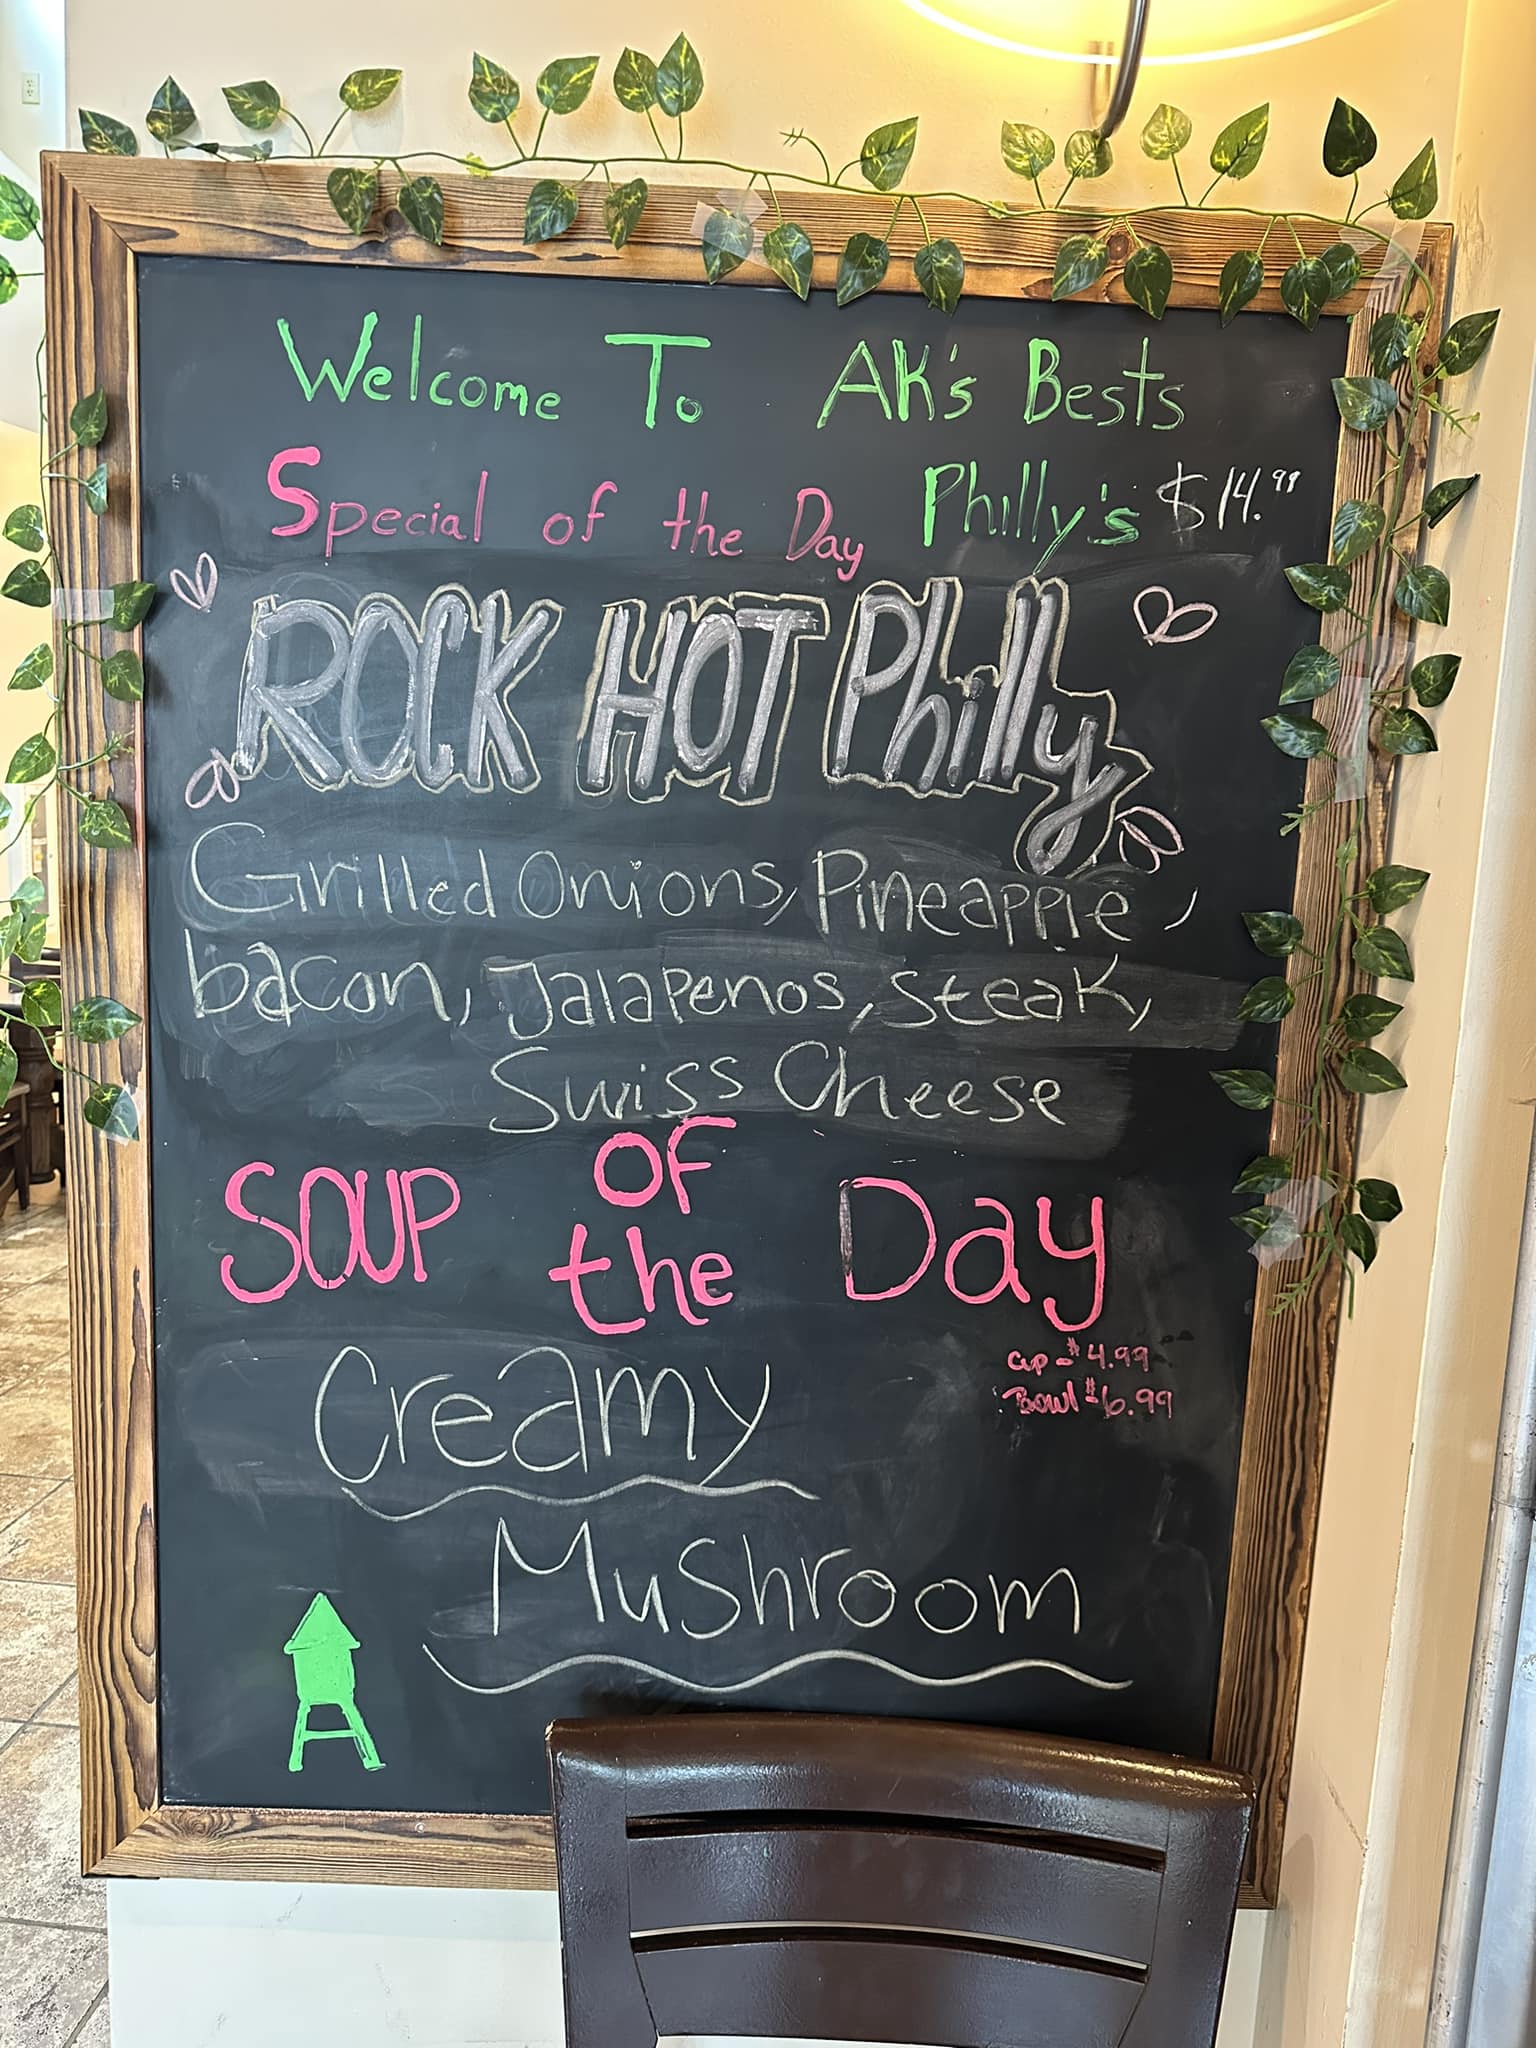 Welcome To AK's Bests
Special of the Day Philly's $14.99
ROCK HOT Philly
Grilled Onions, Pineapple,
bacon, Jalapenos, Steak,
Swiss Cheese
SOUP OF the Day
Cup - $4.99
Bowl - $6.99
Creamy
Mushroom